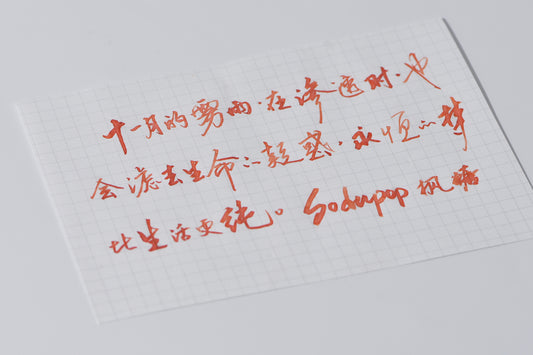 十一月的雾雨·在渗透时·也
会滤去生命的疑惑·永恒的梦
比生活更纯。Sodapop 枫糖